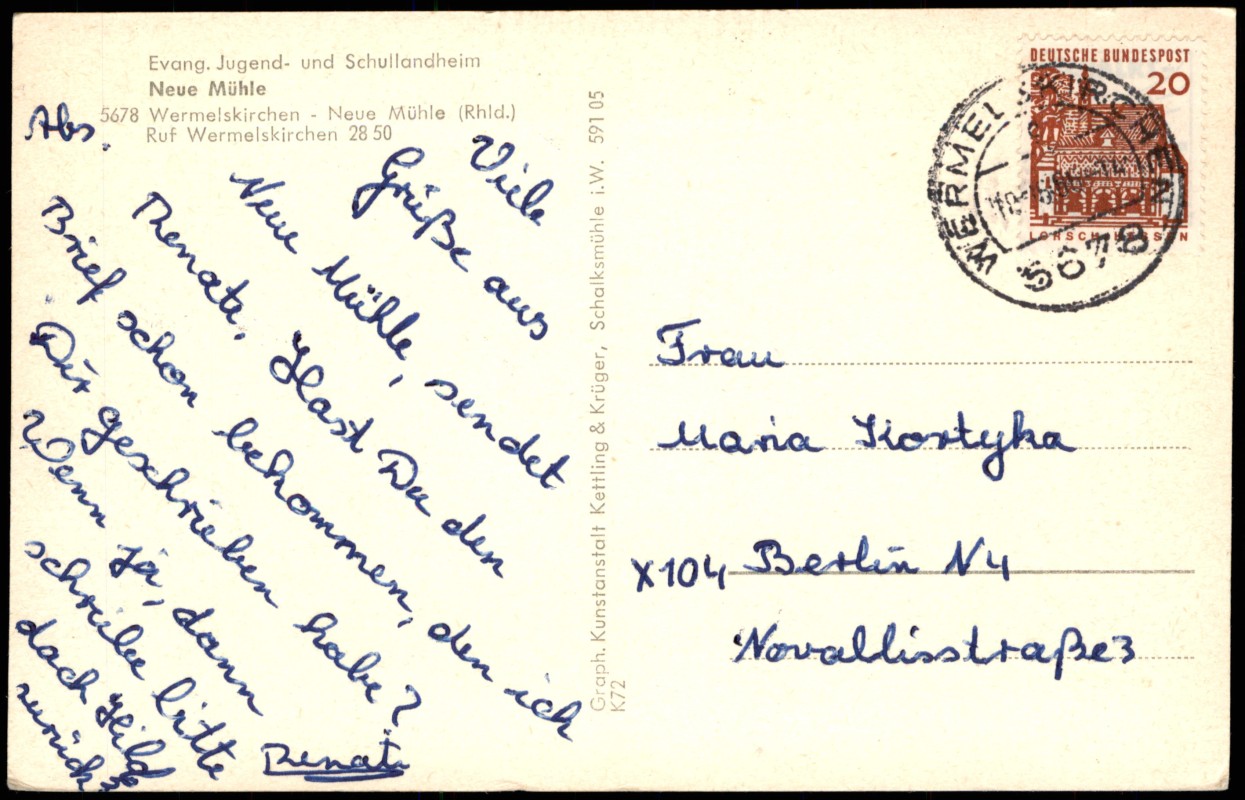 Evang. Jugend- und Schullandheim
Neue Mühle
5678 Wermelskirchen - Neue Mühle (Rhld.)
Ruf Wermelskirchen 28 50
Abs.
Viele
Grüße aus
Neue Mühle, sendet
Renate. Hast Du den
Brief schon bekommen, den ich
Dir geschrieben habe?
Wenn Ja, dann
schreibe bitte
doch
zurück
Renate
Graph. Kunstanstalt Kettling & Krüger, Schalksmühle i.W. 591 05
K72
DEUTSCHE BUNDESPOST
20
LORSCH HESSEN
WERMELSKIRCHEN
5678
Frau
Maria Kostyka
X104 Berlin N4
Novallisstraße 3